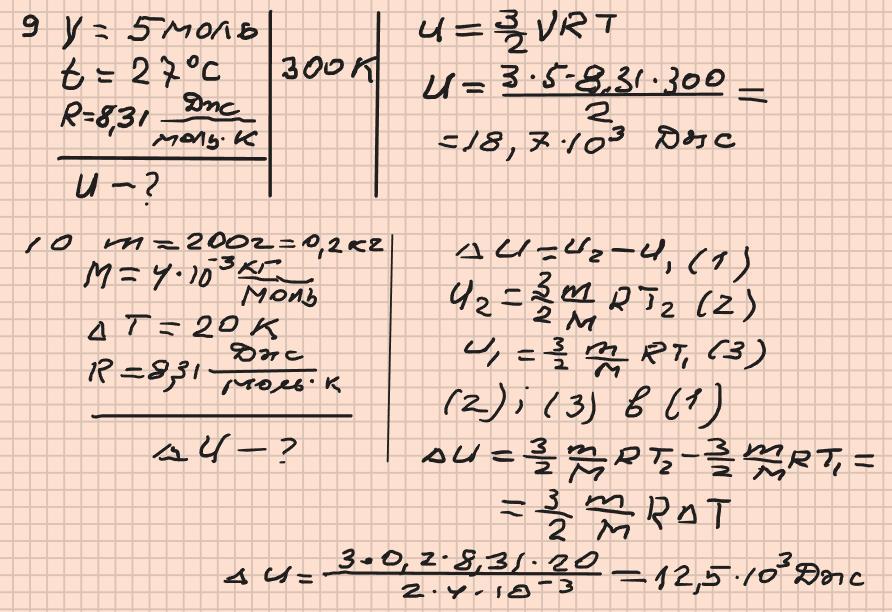 9 ν = 5 моль
t = 27°C
300 K
R = 8,31 Дж/моль·K
U – ?
U = 3/2 νRT
U = 3·5·8,31·300/2 =
= 18,7·10³ Дж
10 m = 200г = 0,2кг
M = 4·10⁻³ кг/моль
ΔT = 20K
R = 8,31 Дж/моль·K
ΔU – ?
ΔU = U₂ – U₁ (1)
U₂ = 3/2 m/M RT₂ (2)
U₁ = 3/2 m/M RT₁ (3)
(2); (3) в (1)
ΔU = 3/2 m/M RT₂ – 3/2 m/M RT₁ =
= 3/2 m/M RΔT
ΔU = 3·0,2·8,31·20/2·4·10⁻³ = 12,5·10³ Дж